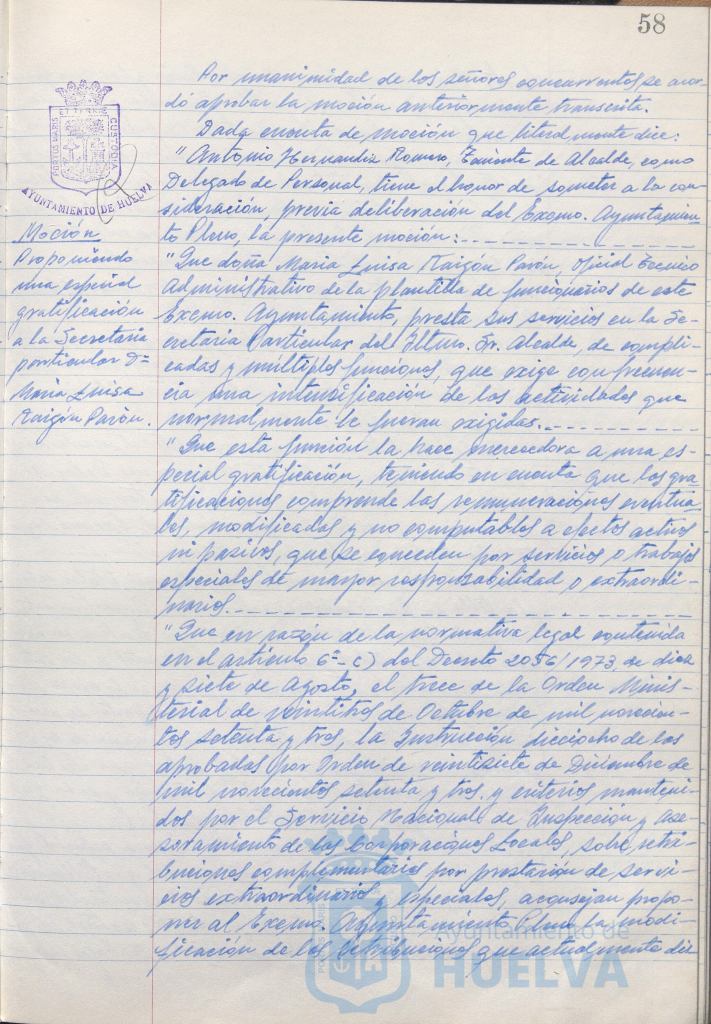 58
Por unanimidad de los señores concurrentes se acor-
dó aprobar la moción anteriormente transcrita.
Dada cuenta de moción que literalmente dice:
"Antonio Hernandez Romero, Teniente de Alcalde, como
Delegado de Personal, tiene el honor de someter a la con-
sideración, previa deliberación del Excmo. Ayuntamien-
to Pleno, la presente moción:
"Que doña Maria Luisa Raigón Pavón, Oficial Tecnico
Administrativo de la plantilla de funcionarios de este
Excmo. Ayuntamiento, presta sus servicios en la Se-
cretaria Particular del Iltmo. Sr. Alcalde, de compli-
cadas y múltiples funciones, que exige con frecuen-
cia una intensificación de las actividades que
normalmente le fueran exigidas.
"Que esta función la hace merecedora a una es-
pecial gratificación, teniendo en cuenta que las gra-
tificaciones comprende las remuneraciones eventua-
les, modificadas y no computables a efectos activos
ni pasivos, que se conceden por servicios o trabajos
especiales de mayor responsabilidad o extraordi-
narios.
"Que en razón de la normativa legal contenida
en el artículo 6º-C) del Decreto 2056/1973, de diez
y siete de Agosto, el trece de la Orden Minis-
terial de veintitres de Octubre de mil novecien-
tos setenta y tres, la Instrucción dieciocho de las
aprobadas por Orden de veintisiete de Diciembre de
mil novecientos setenta y tres, y criterios manteni-
dos por el Servicio Nacional de Inspección y ase-
soramiento de las Corporaciones Locales, sobre retri-
buciones complementarias por prestación de servi-
cios extraordinarios y especiales, aconsejan propo-
ner al Excmo. Ayuntamiento Pleno la modi-
ficación de las retribuciones que actualmente dis
PORTUS MARIS ET TERRAE CUSTODIA
AYUNTAMIENTO DE HUELVA
Moción
Proponiendo
una especial
gratificación
a la Secretaria
particular Dª
Maria Luisa
Raigón Pavón.
Ayuntamiento de
HUELVA